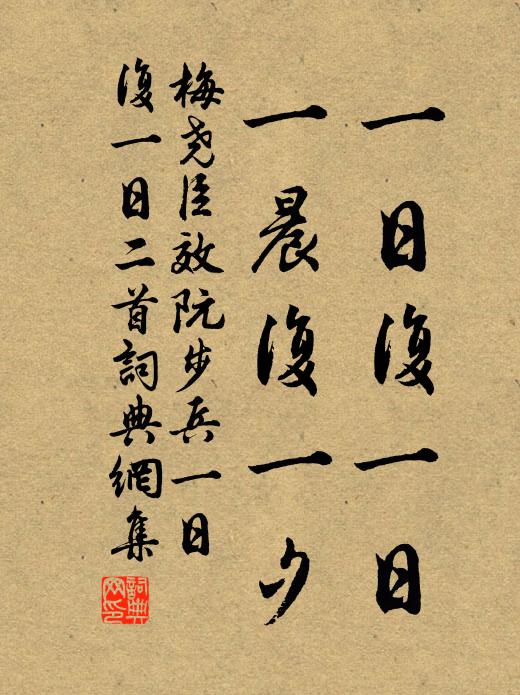 一日復一日
一晨復一夕
梅堯臣效阮步兵一日
復一日二首詞典網集
詞典
网印